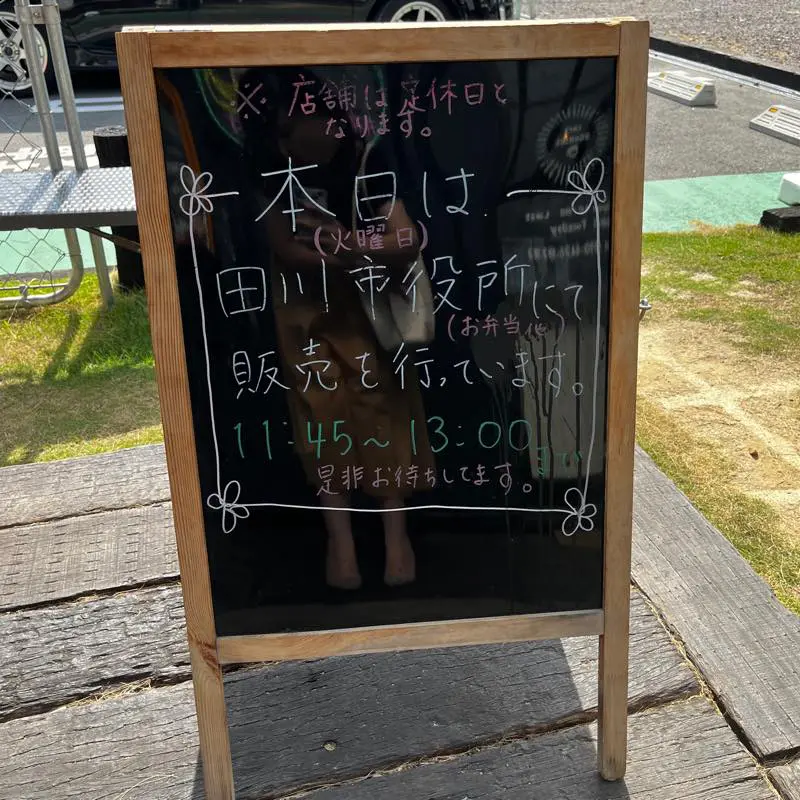 ※ 店舗は定休日と
なります。
本日は
(火曜日)
田川市役所にて
(お弁当他)
販売を行っています。
11:45~13:00まで
是非お待ちしてます。